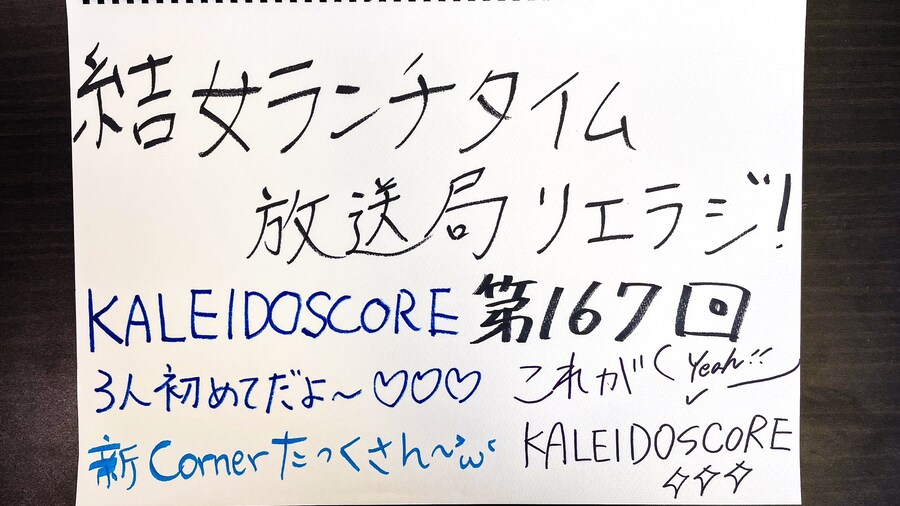 結女ランチタイム
放送局リエラジ!
KALEIDOSCORE 第167回
3人初めてだよ~♡♡♡
これが Yeah!!
新Cornerたっくさん~'ω'
KALEIDOSCORE